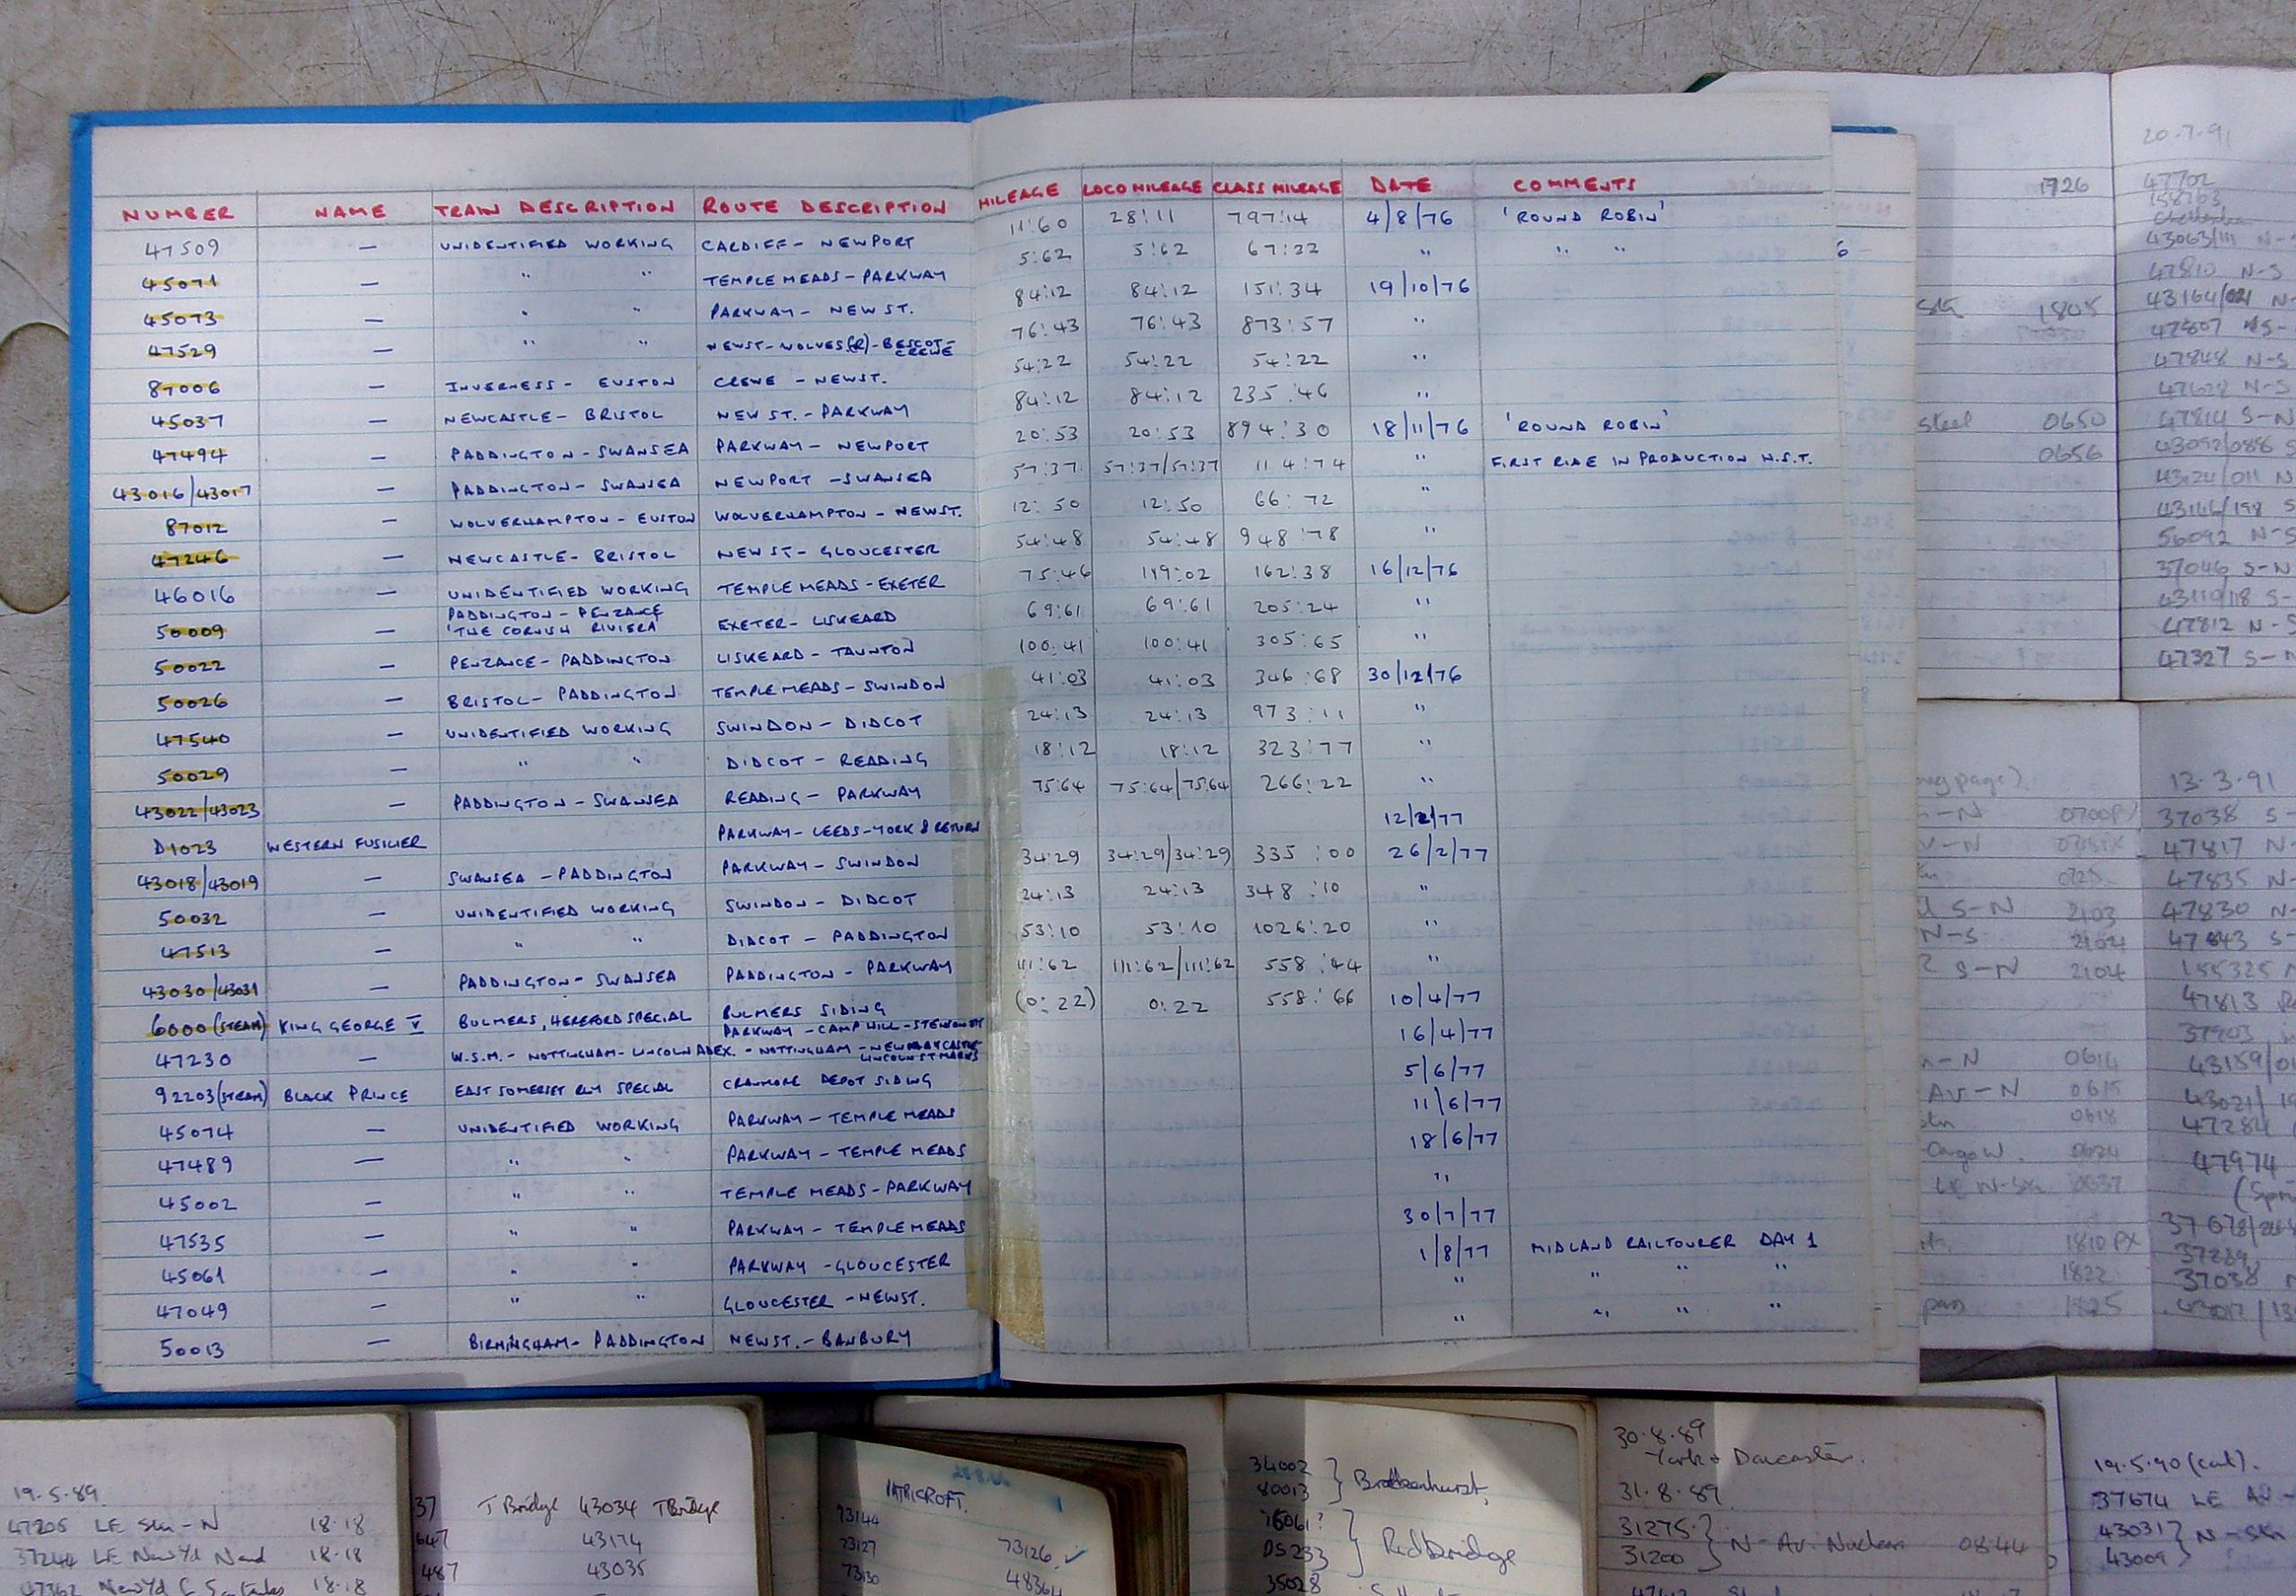 NUMBER NAME TRAIN DESCRIPTION ROUTE DESCRIPTION MILEAGE LOCO MILEAGE CLASS MILEAGE DATE COMMENTS
47509 — UNIDENTIFIED WORKING CARDIFF - NEWPORT 11:60 28:11 797:14 4/8/76 'ROUND ROBIN'
45071 — " " TEMPLE MEADS - PARKWAY 5:62 5:62 67:22 " " "
45073 — " " PARKWAY - NEW ST. 84:12 84:12 151:34 19/10/76
47529 — " " NEWST - WOLVES(R) - BESCOT - CREWE 76:43 76:43 873:57 "
87006 — INVERNESS - EUSTON CREWE - NEWST. 54:22 54:22 54:22 "
45037 — NEWCASTLE - BRISTOL NEW ST. - PARKWAY 84:12 84:12 235:46 "
47494 — PADDINGTON - SWANSEA PARKWAY - NEWPORT 20:53 20:53 894:30 18/11/76 'ROUND ROBIN'
43016/43017 — PADDINGTON - SWANSEA NEWPORT - SWANSEA 57:37 57:37/57:37 114:74 " FIRST RIDE IN PRODUCTION H.S.T.
87012 — WOLVERHAMPTON - EUSTON WOLVERHAMPTON - NEWST. 12:50 12:50 66:72 "
47246 — NEWCASTLE - BRISTOL NEW ST - GLOUCESTER 54:48 54:48 948:78 "
46016 — UNIDENTIFIED WORKING TEMPLE MEADS - EXETER 75:46 149:02 162:38 16/12/76
50009 — PADDINGTON - PENZANCE 'THE CORNISH RIVIERA' EXETER - LISKEARD 69:61 69:61 205:24 "
50022 — PENZANCE - PADDINGTON LISKEARD - TAUNTON 100:41 100:41 305:65 "
50026 — BRISTOL - PADDINGTON TEMPLE MEADS - SWINDON 41:03 41:03 346:68 30/12/76
47540 — UNIDENTIFIED WORKING SWINDON - DIDCOT 24:13 24:13 973:11 "
50029 — " " DIDCOT - READING 18:12 18:12 323:77 "
43022/43023 — PADDINGTON - SWANSEA READING - PARKWAY 75:64 75:64/75:64 266:22 "
D1023 WESTERN FUSILIER PARKWAY - LEEDS - YORK & RETURN 12/2/77
43018/43019 — SWANSEA - PADDINGTON PARKWAY - SWINDON 34:29 34:29/34:29 335:00 26/2/77
50032 — UNIDENTIFIED WORKING SWINDON - DIDCOT 24:13 24:13 348:10 "
47513 — " " DIDCOT - PADDINGTON 53:10 53:10 1026:20 "
43030/43031 — PADDINGTON - SWANSEA PADDINGTON - PARKWAY 111:62 111:62/111:62 558:44 "
6000 (STEAM) KING GEORGE V BULMERS, HEREFORD SPECIAL BULMERS SIDING (0:22) 0:22 558:66 10/4/77
47230 — W.S.M. - NOTTINGHAM - LINCOLN ADEX. PARKWAY - CAMP HILL - - NOTTINGHAM - LINCOLN ST MARKS 16/4/77
92203 (STEAM) BLACK PRINCE EAST SOMERSET RLY SPECIAL CRANMORE DEPOT SIDING 5/6/77
45074 — UNIDENTIFIED WORKING PARKWAY - TEMPLE MEADS 11/6/77
47489 — " " PARKWAY - TEMPLE MEADS 18/6/77
45002 — " " TEMPLE MEADS - PARKWAY "
47535 — " " PARKWAY - TEMPLE MEADS 30/7/77
45061 — " " PARKWAY - GLOUCESTER 1/8/77 MIDLAND RAILTOURER DAY 1
47049 — " " GLOUCESTER - NEWST. " " " "
50013 — BIRMINGHAM - PADDINGTON NEWST. - BANBURY " " " "
20-7-91
1726 47702
158763
43063/111 N-
47810 N-S
1805 43164/021 N-
47807
47848 N-S
47628 N-S
steel 0650 47814 S-N
0656 43092/088 S
011 N
56092 N-S
37046 S-N
43110/118 S-
47812 N-S
47327 S-N
13-3-91
-N 0700 37038 S-
-N 47817 N-
0725 47835 N-
S-N 2103 47830 N-
N-S 2104 47843 S-
S-N 2104 155325 N
47813
-N 0614 43189/
AV-N 0615 43021/19
0618 47284
Cargo W. 0624 47974
LE N-Stn 0637
1810 PX
1822 37038
1825
19.5.89
47205 LE Stn - N 18.18
37244 LE New Yd N 18.18
47362 New Yd 18.18
37 T Bridge 43034 T Bridge
647 43174
487 43035
PATRICROFT.
73144
73127 73126 ✓
73130 48364
34002
80013 } Brockenhurst,
76061?
DS 233 } Redbridge
35028
30.8.89
York & Doncaster.
31.8.89
31275
31200 } N - Av. Nuclear 0844
19.5.90 (cont).
37674 LE AV -
43031
43009 } N - Stn